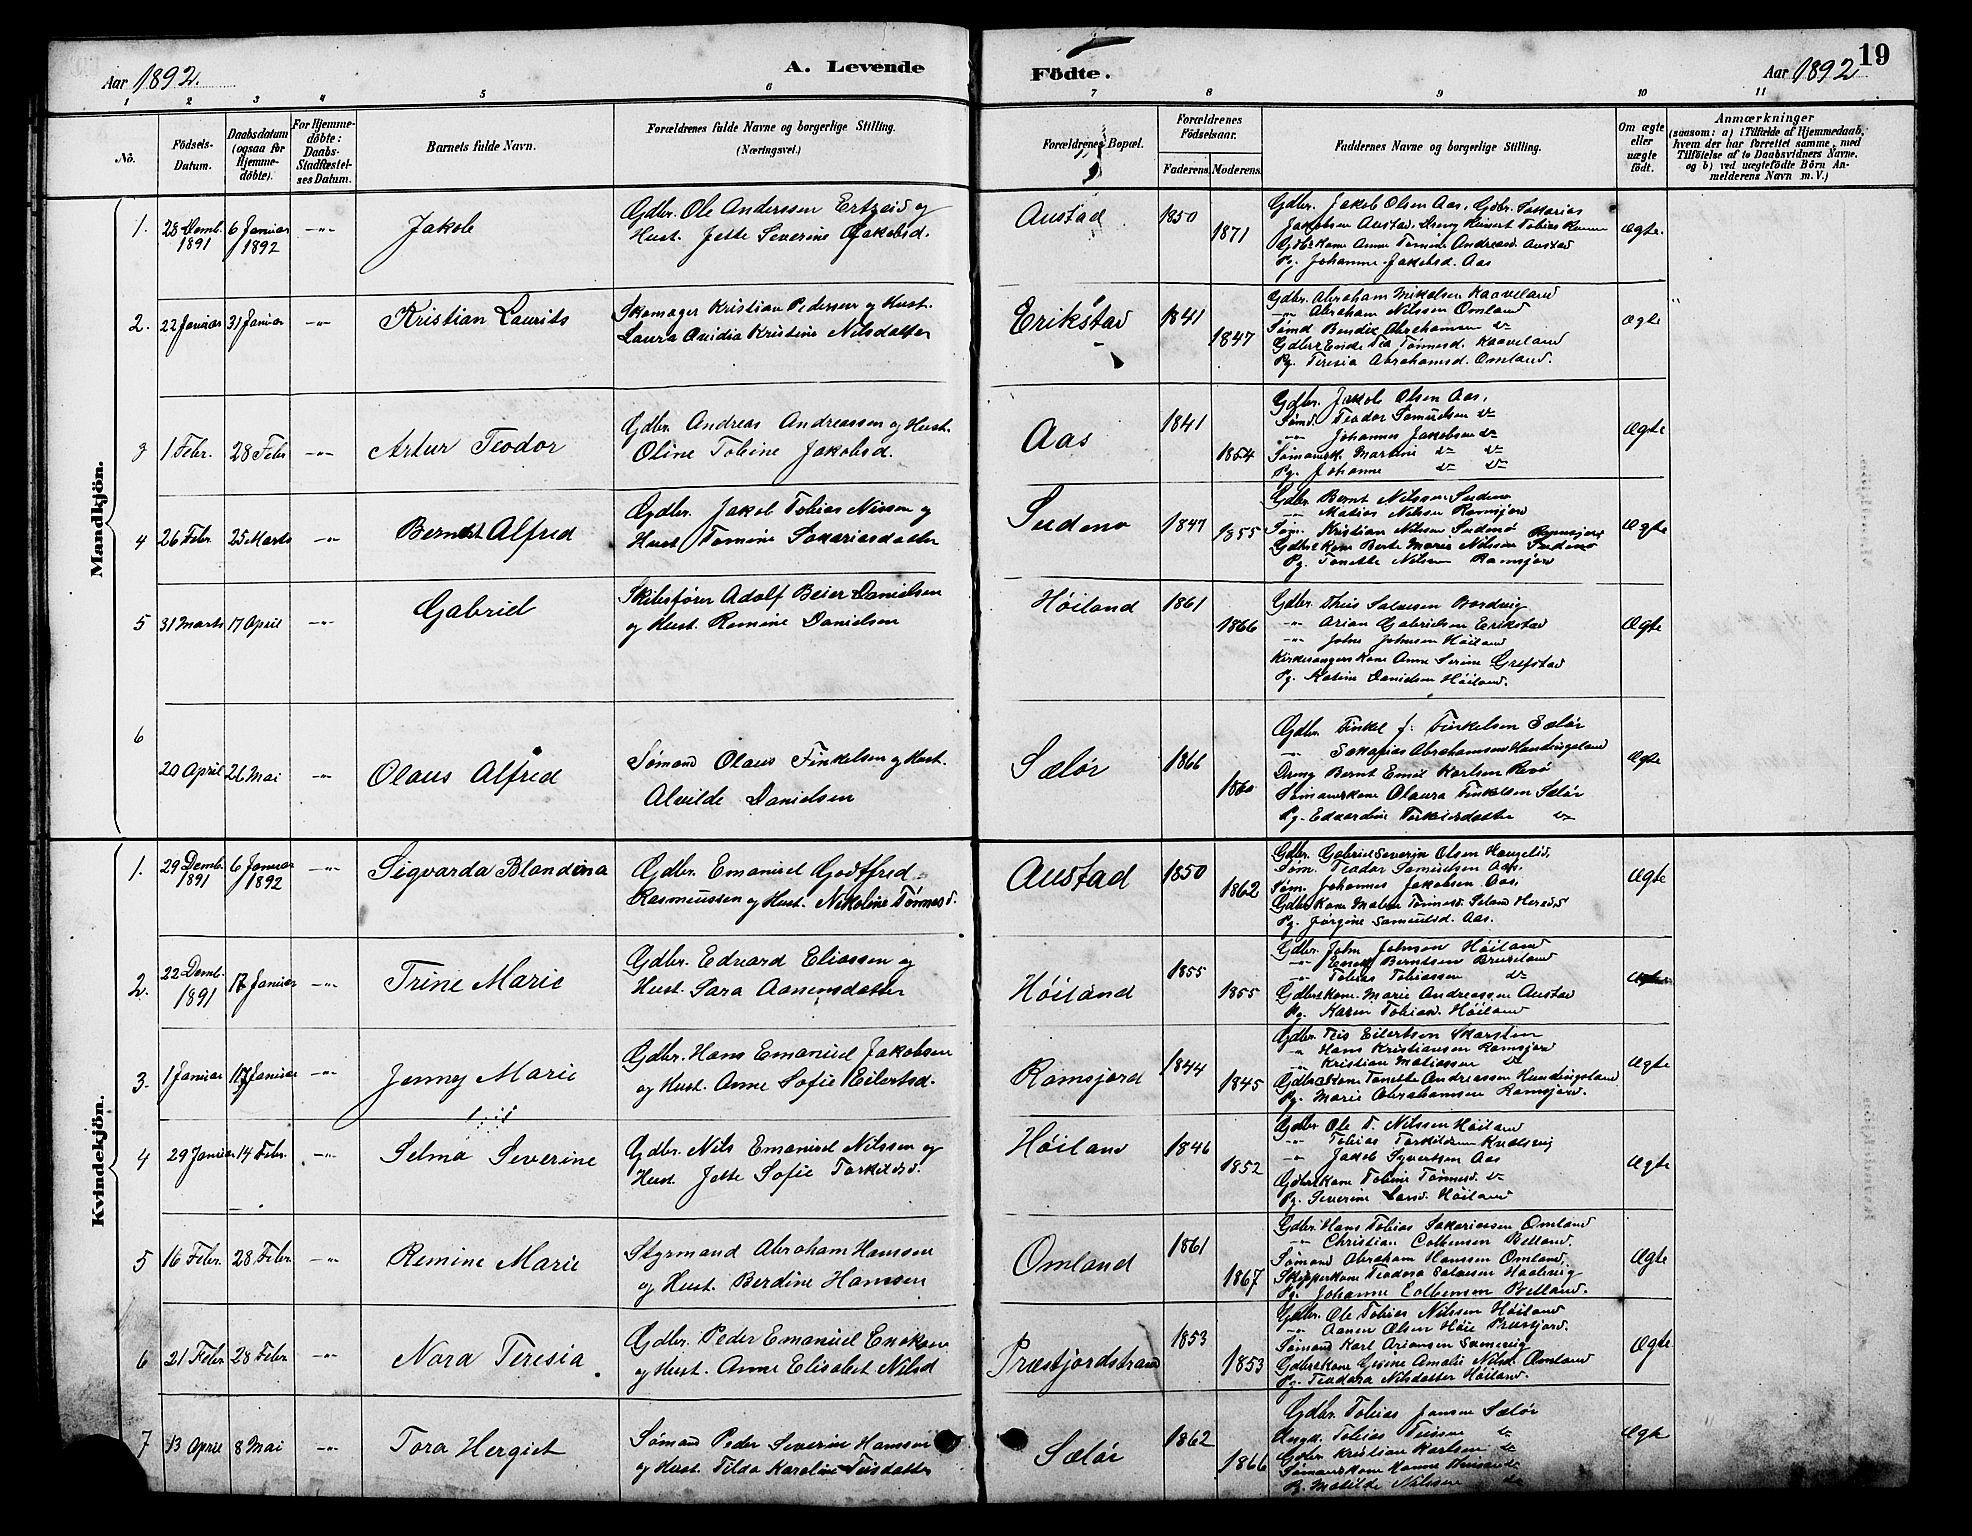 Aar 1892. A. Levende Födte. Aar 1892 19
1 2 3 4 5 6 7 8 9 10 11
Nò. Födsels-Datum. Daabsdatum (ogsaa for Hjemme-döbte). For Hjemme-döbte: Daabs-Stadfæstel-ses Datum. Barnets fulde Navn. Forældrenes fulde Navne og borgerlige Stilling. (Næringsvei.) Forældrenes Bopæl. Forældrenes Födselsaar. Faderens. Moderens. Faddernes Navne og borgerlige Stilling. Om ægte eller uægte födt. Anmærkninger (saasom: a) i Tilfælde af Hjemmedaab, hvem der har forrettet samme, med Tilföielse af to Daabsvidners Navne, og b) ved uægtefödte Börn An-melderens Navn m. V.)
Mandkjön.
1. 28 Demb. 1891 6 Januar 1892 -"- Jakob
Gdbr. Ole Anderssen Ertzeid og
Hust. Jette Severine Jakobsd.
Austad 1850 1871
Gdbr. Jakob Olsen Aas, Gdbr. Sakarias
Jakobsen Austad. Dreng Tobias
Gdbrskone Anne Tomine Andreasd. Austad
Pg. Johanne Jakobsd. Aas
Ægte.
2. 22 Januar 31 Januar -"- Kristian Laurits
Skomager Kristian Pedersen og Hust.
Laura Ovidia Kristine Nilsdatter
Erikstad 1841 1847
Gdbr. Abraham Mikalsen Kaaveland
-"- Abraham Nilssen Omland
Sømd Bendix Abrahamsen do
Gdbrs Enke Tea Tønnesd. Kaaveland
Pg. Teresia Abrahamsd. Omland.
Ægte
3 1 Febr. 28 Febr -"- Artur Teodor
Gdbr. Andreas Andreassen og Hust.
Oline Tobine Jakobsd.
Aas 1841 1854
Gdbr. Jakob Olsen Aas,
Sømd. Teodor Samuelsen do
-"- Johannes Jakobsen do
Sømandsk. Martine do do
Pg. Johanne do do
Ægte
4 26 Febr. 25 Marts -"- Berndt Alfred
Gdbr. Jakob Tobias Nissen og
Hust Tomine Sakariasdatter
Indenø 1847 1855
Gdbr. Bernt Nilssen Indenø
-"- Matias Nilsen Ramsjord
Søm. Kristian Nilsen Indenø
Gdbrs kone Berte Marie Nilssen Indenø Ramsjord
Pg. Tonette Nilsen Ramsjord
Ægte
5 31 Marts 17 April -"- Gabriel
Skibsfører Adolf Beier Danielsen
og Hust. Romine Danielsen
Høiland 1861 1866
Gdbr. Theis Salvesen Bordvig
-"- Arian Gabrielsen Erikstad
-"- John Johnsen Høiland
Kirkesangers Kone Anne Serine Grefstad
Pg. Katine Danielsen Høiland.
Ægte
6 20 April 26 Mai -"- Olaus Alfred
Sømand Olaus Finkelsen og Hust.
Alvilde Danielsen
Sælør 1866 1860
Gdbr. Finkel J. Finkelsen Sælør
-"- Sakarias Abrahamsen Hundingsland
Dreng Bernt Emil Karlsen Revø
Sømandskone Olaura Finkelsen Sælør
Pg. Edvardine do
Ægte
Kvindekjön.
1. 29 Demb. 1891 6 Januar 1892 -"- Sigvarda Blondina
Gdbr. Emanuel Godtfred
Rasmussen og Hust. Nikoline Tønnesd.
Austad 1850 1862
Gdbr. Gabriel Severin Olsen Haugelid,
Søm. Teodor Samuelsen Aas,
Søm. Johannes Jakobsen Aas,
Gdbrs Kone Malene Tønnesd. Seland Hered
Pg. Jørgine Samuelsd. Aas.
Ægte
2. 22 Demb. 1891 17 Januar -"- Trine Marie
Gdbr. Edvard Eliassen og
Hust. Sara Aanensdatter
Høiland 1855 1855
Gdbr. John Johnsen Høiland
-"- Enok Berntsen Bruseland
-"- Tobias Tobiassen do
Gdbrskone. Marie Andreassen Austad
Pg. Karen Tobiasd. Høiland
3. 1 Januar 17 Januar -"- Jenny Marie
Gdbr. Hans Emanuel Jakobsen
og Hust. Anne Sofie Eilertsd.
Ramsjord 1844 1845
Gdbr. Teis Eilertsen Skarstein
-"- Hans Kristiansen Ramsjord
-"- Kristian Matiassen do
Gdbrs Kone Tonette Andreassen Hundingsland
Pg. Marie Abrahamsen Ramsjord.
Ægte
4 29 Januar 14 Febr. -"- Selma Severine
Gdbr. Nils Emanuel Nilssen og
Hust. Jette Sofie Torkildsd.
Høiland 1846 1852
Gdbr Ole T. Nilssen Høiland
-"- Tobias Torkildsen Kvalsvig
-"- Jakob Syvertsen Aas
Gdbrskone Tobine Tønnesd. do
Pg. Severine Larsd. Høiland
Ægte
5 16 Febr. 28 Febr. -"- Remine Marie
Styrmand Abraham Hanssen
og Hust. Berdine Hanssen
Omland 1861 1867
Gdbr. Hans Tobias Sakariassen Omland
-"- Christian Colbensen Belland,
Sømand Abraham Hanssen Omland,
Skipperkone Teodora Salvesen Haalevig
Pg. Johanne Colbensen Belland.
Ægte
6 21 Febr. 28 Febr. -"- Nora Teresia
Gdbr. Peder Emanuel Enoksen
og Hust. Anne Elisabet Nilsd
Præstjordstrand 1853 1853
Gdbr. Ole Tobias Nilssen Høiland
-"- Aanen Olsen Høie Præstjord.
Sømand Karl Ariansen Samevig
Gdbrskone Gesine Amalie Nilsd. Omland
Pg. Teodora Nilsdatter Høiland.
Ægte
7 13 April 8 Mai -"- Tora Hergiet
Sømand Peder Severin Hansen
og Hust. Tilda Karoline Teisdatter
Sælør 1862 1866
Gdbr. Tobias Jansen Sælør
Ungk. Tobias Teissen do
Gdbr. Kristian Karlsen do
Sømandskone Hanne do
Pg. Matilde Nilssen do
Ægte